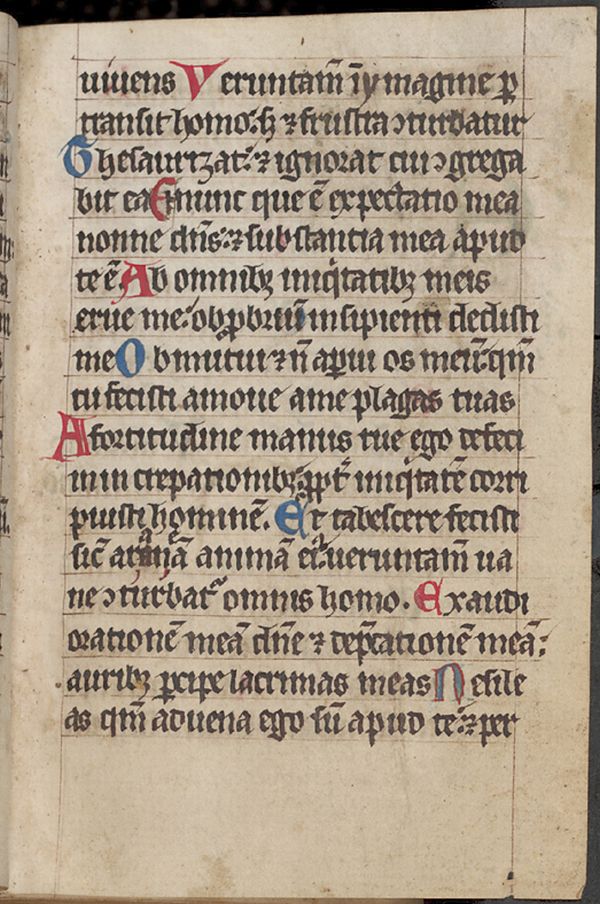 uiuens Veruntam̄ ī ymagine ꝑ
transit homo: sꝫ ⁊ frustra ↄturbatur
Thesaurizat: ⁊ ignorat cui ↄgrega
bit ea Et nunc que ē expectatio mea
nonne dn̄s: ⁊ substantia mea apud
te ē Ab omnibꝫ iniqͥtatibꝫ meis
erue me: obꝓbriū insipienti dedisti
me Obmutui ⁊ nō aperui os meū: qm̄
tu fecisti amoue a me plagas tuas
A fortitudine manus tue ego defeci
in increpationibꝫ: ꝓpt̄ iniqͥtatē corri
puisti hominē. Et tabescere fecisti
sic̄ araneā animā eiꝰ: ueruntam̄ ua
ne ↄturbat᷑ omnis homo. Exaudi
orationē meā dn̄e ⁊ dep̄cationē meā:
auribꝫ ꝑcipe lacrimas meas Ne sile
as qm̄ aduena ego sū apud te: ⁊ per